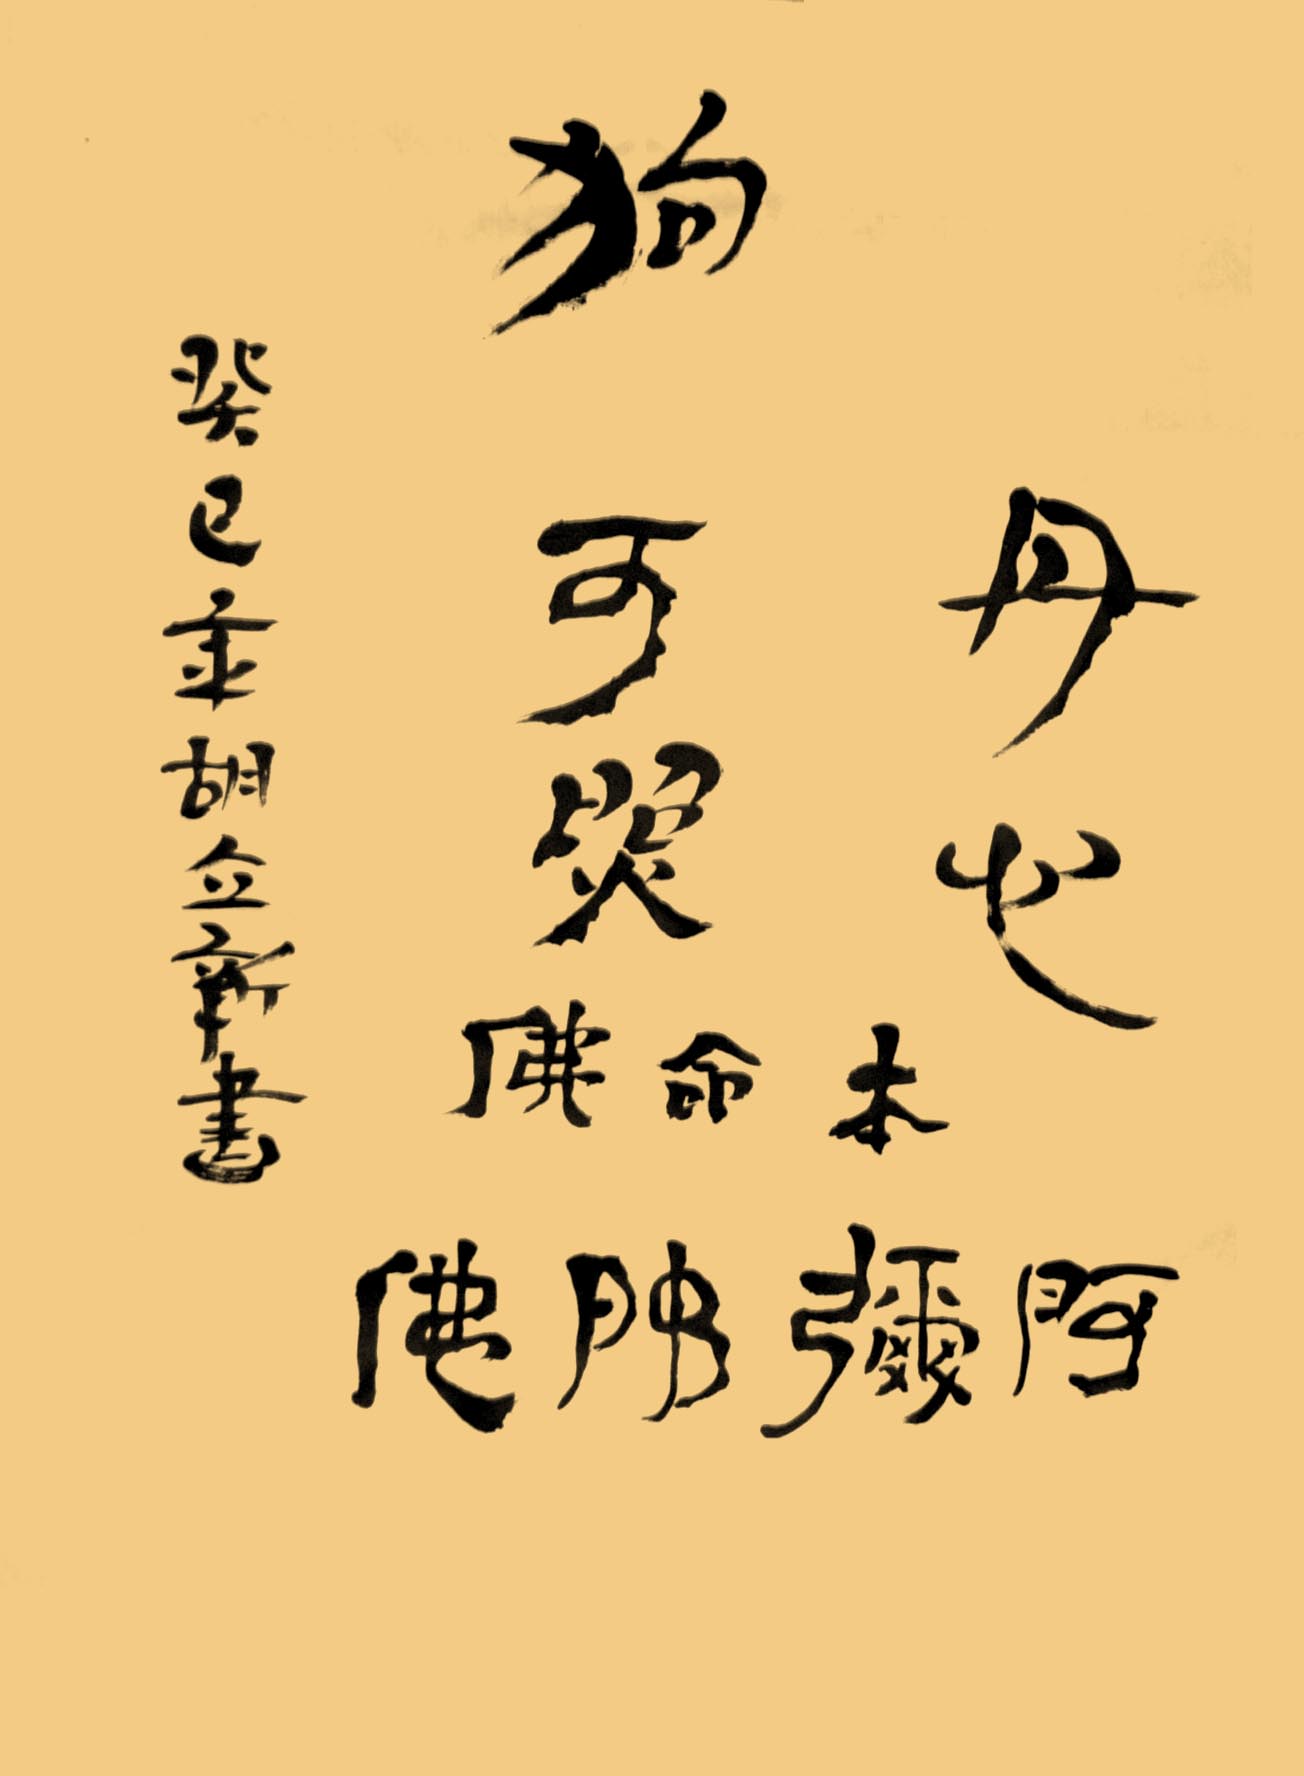 狗
丹心
可照
本命佛
阿彌陀佛
癸巳年胡立新書